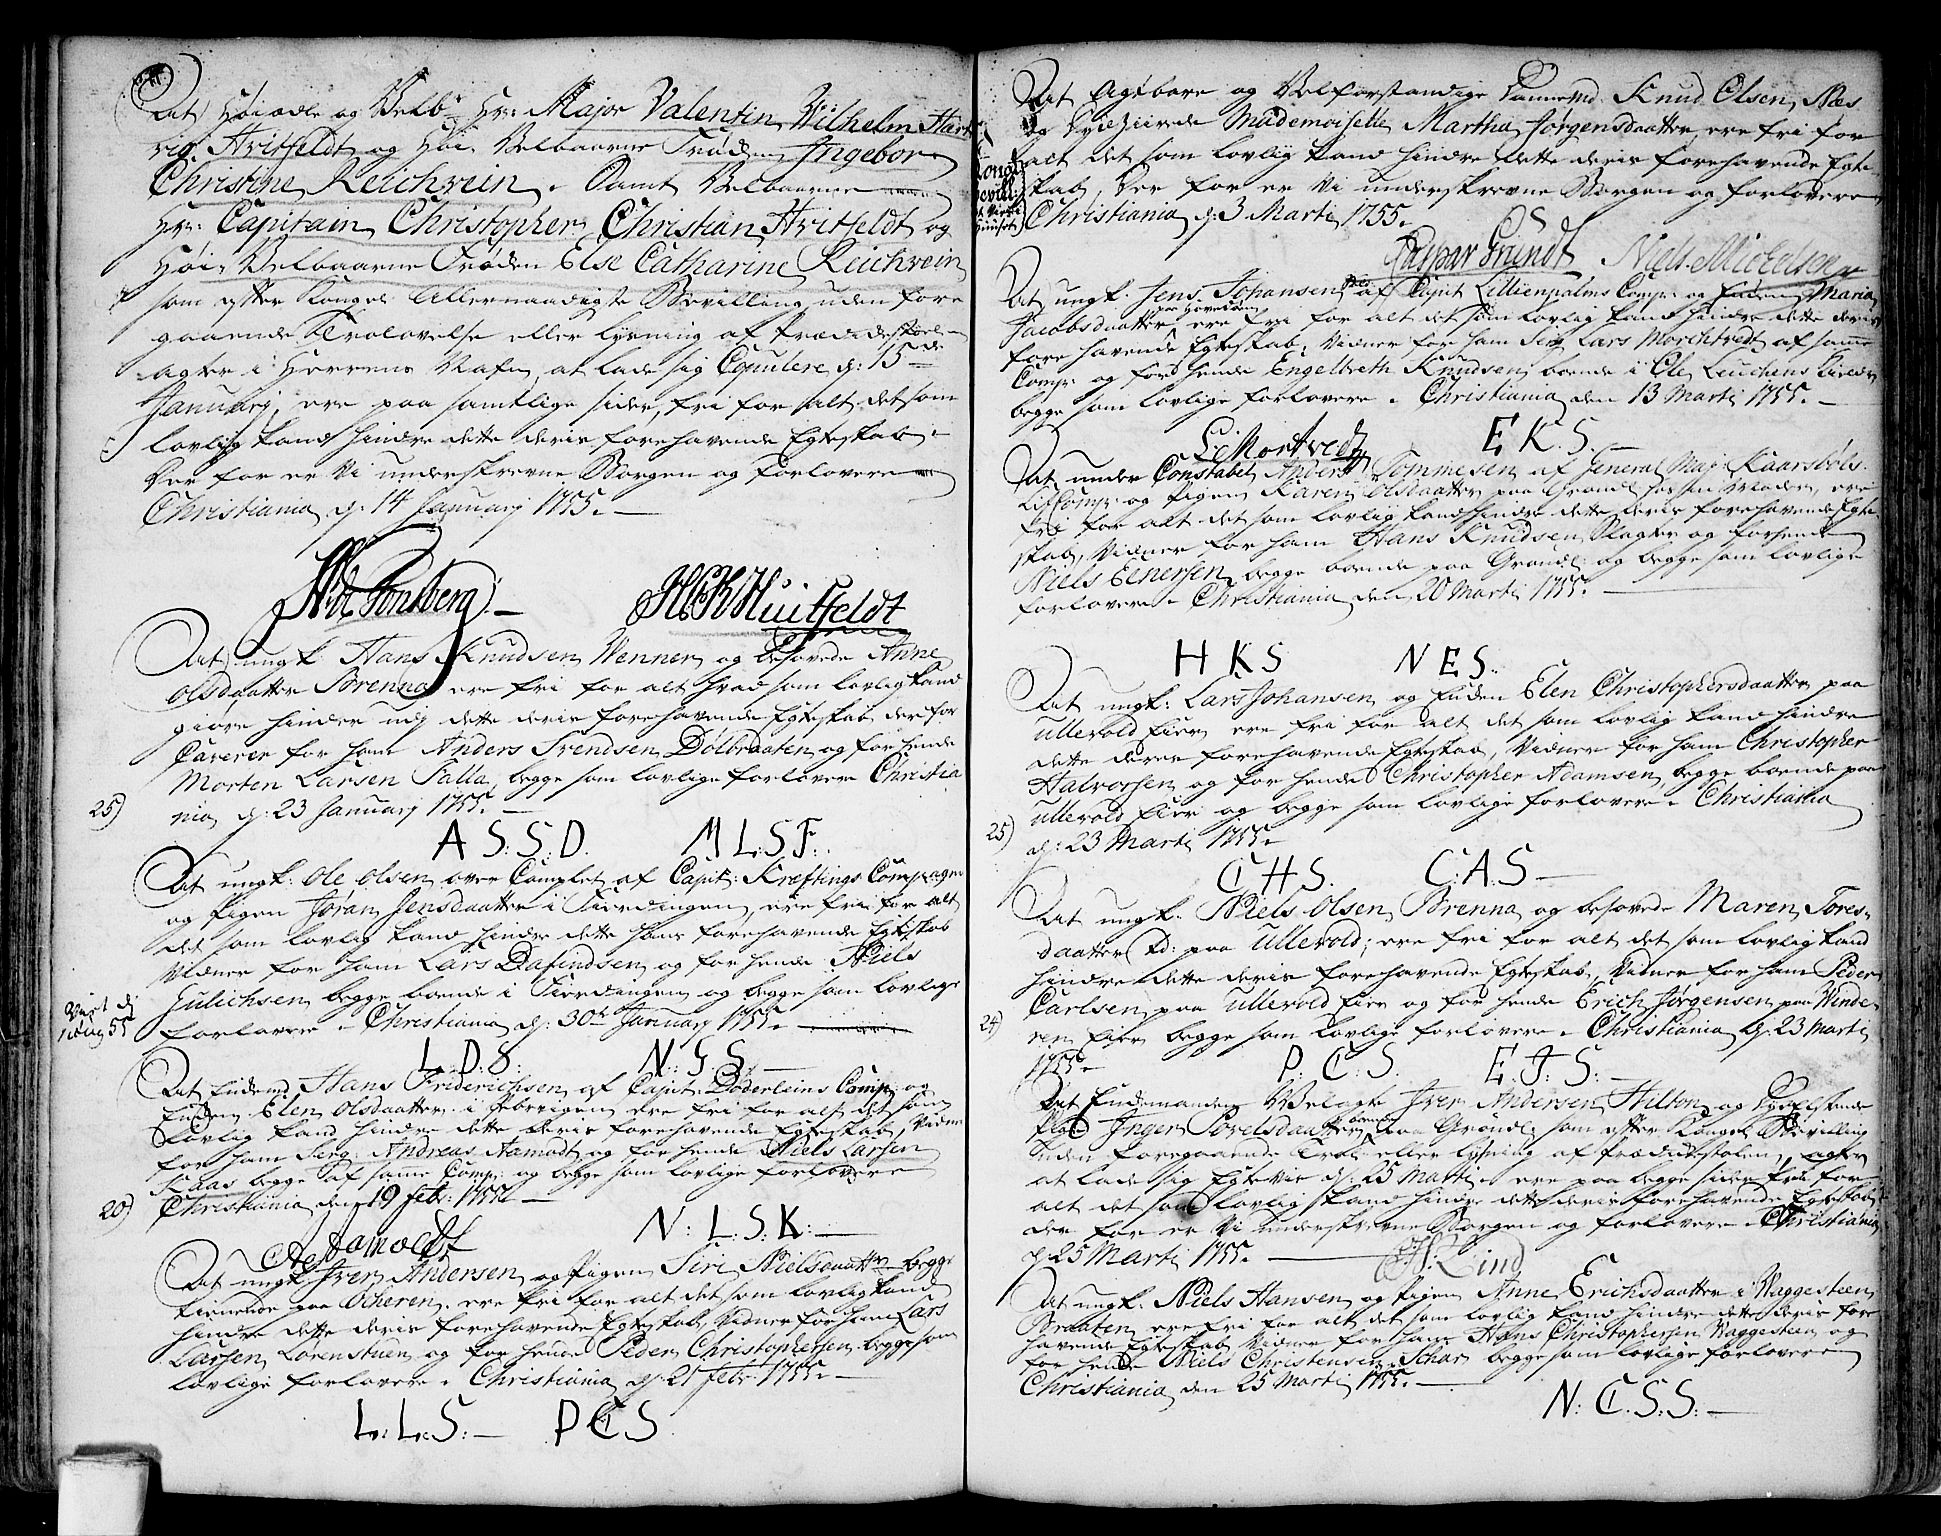 At Høiædle og Velb: Hr: Major Valentin Wilhelm Hart
vig Hvitfeldt og Høi Velbaarne Frøden Ingebor
Christine Reichwein. Samt Velbaarne
Hr: Capitain Christopher Christian Hvitfeldt og
Høi Velbaarne Frøden Else Catharine Reichwein
som efter Kongel: Allernaadigste Bevilling uden fore
gaaende Trolovelse eller lysning af Prædikestoelen
agter i Herrens Nafn at lade sig Copulere d: 15de
Januarj, ere paa samtlige sider, fri for alt det som
lovlig kand hindre dette deris forehavende Egteskab.
Der for er Vi underskrevne Borgen og forlovere
Christiania d: 14 Januarj 1755.
N de Tonsberg.
HCK Huitfeldt
At ungk: Hans Knudsen Wenner og besovede Anne
Olsdaatter Brenna ere fri for alt hvad som lovlig kand
giøre hinder udj dette deris forehavende Egteskab der for
Caverer for ham Anders Svendsen Dølbraaten og for hende
Morten Larsen Falla, begge som lovlige forlovere Christia
25) nia d: 23 Januarj 1755.
A S:S:D. M L:S F:
At ungk: Ole Olsen over Complet af Capit: Kreftings Compagn:
og Pigen Jøran Jensdaatter i Fierdingen, ere fri for alt
det som lovlig kand hindre dette hans forehavende Egteskab
Vidner for ham Lars Dafindsen og for hende Niels
Gulichsen begge boende i Fierdingen og begge som lovlige
forlovere. Christiania d: 30te Januarj 1755.
L:D:S: N:G:S.
At Enkemd Hans Friderichsen af Capit: Døderleins Comp: og
Enken Elen Olsdaatter i Gebvrigen ere fri for alt det som
lovlig kand hindre dette deris forehavende Egteskab, Vidner
for ham Serg: Andreas Aamodt og for hende Niels Larsen
Kaas begge af samme Comp: og begge som lovlige forlovere
20) Christiania den 19 Febr: 1755.
Aamodt N: L.S.K:
At ungk: Iver Andersen og Pigen Siri Nielsdaatter begge
tienende paa Ocheren, ere fri for alt det som lovlig kand
hindre dette deris forehavende Egteskab, Vidner for ham Lars
Larsen Lørenstuen og for hende Peder Christophersen begge som
lovlige forlovere. Christiania d: 21 Febr: 1755.
L:L:S: P C S.
At Agtbare og Velforstandige Dannemd. Knud Olsen Næs
og Dydziirede Mademoiselle Martha Jørgensdaatter ere fri for
alt det som lovlig kand hindre dette deris forehavende Egte
skab, Der for er Vi underskrevne Borgen og forlovere
Christiania d: 3 Martj 1755.
Caspar Grundt Niels Michelsen
At ungk: Jens Johansen af Capit Lillienpalms Comp: og Enken Maria
Jacobsdaatter ere fri for alt det som lovlig kand hindre dette deris
fore havende Egteskab, Vidner for ham Serg Lars Morchtvedt af samme
Comp: og for hende Engelbreth Knudsen boende i Ole Leuchens
begge som lovlige forlovere. Christiania den 13 Martj 1755.
L: Mortvedt E K.S.
At under Constabel Anders Tommesen af General Maj: Kaarsbøls
Lif Comp: og Pigen Karen Olsdaatter paa Grønd: ere
fri for alt det som lovlig kand hindre dette deris forehavende Egte
skab, Vidner for ham Hans Knudsen Slagter og for hende
Niels Enersen begge boende paa Grønd: og begge som lovlige
forlovere. Christiania den 20 Martj 1755.
H K S N E S.
At ungk: Lars Johansen og Enken Elen Christophersdaatter paa
Ullevold Eier ere fri for alt det som lovlig kand hindre
dette deres forehavende Egteskab, Vidner for ham Christopher
Halvorsen og for hende Christopher Adamsen, begge boende paa
Ullevold Eier og begge som lovlige forlovere. Christiania
25) d: 23 Martj 1755.
C H S. C:A.S
At ungk: Niels Olsen Brenna og besovede Maren Tores-
daatter paa Ullevold, ere fri for alt det som lovlig kand
hindre dette deris forehavende Egteskab, Vidner for ham Peder
Carlsen paa Ullevold Eier og for hende Erich Jørgensen paa Winde
24) ren Eier begge som lovlige forlovere. Christiania d: 23 Martj
1755.
P: C.S. E.J:S:
At Enkemanden Velagte Iver Andersen Hilton og Dydelskende
Pige Inger Povelsdaatter paa Grønd: som efter Kongel: Bevilling
uden foregaaende Trol: eller lysning af Prædikestolen, agter
at lade sig Egtevie d: 25 Martj. ere paa begge sider frie for
alt det som lovlig kand hindre dette deris forehavende Egteskab
der for er Vi underskrevne Borgen og forlovere. Christiania
d: 25 Martj 1755. Lind
At ungk: Niels Hansen og Pigen Anne Erichsdaatter i Waggesteen
Braaten ere fri for alt det som lovlig kand hindre dette deris fore
havende Egteskab, Vidner for ham Hans Christophersen Waggesteen og
for hende Niels Christensen Schar begge som lovlige forlovere
Christiania den 25 Martj 1755.
N: C.S:S: